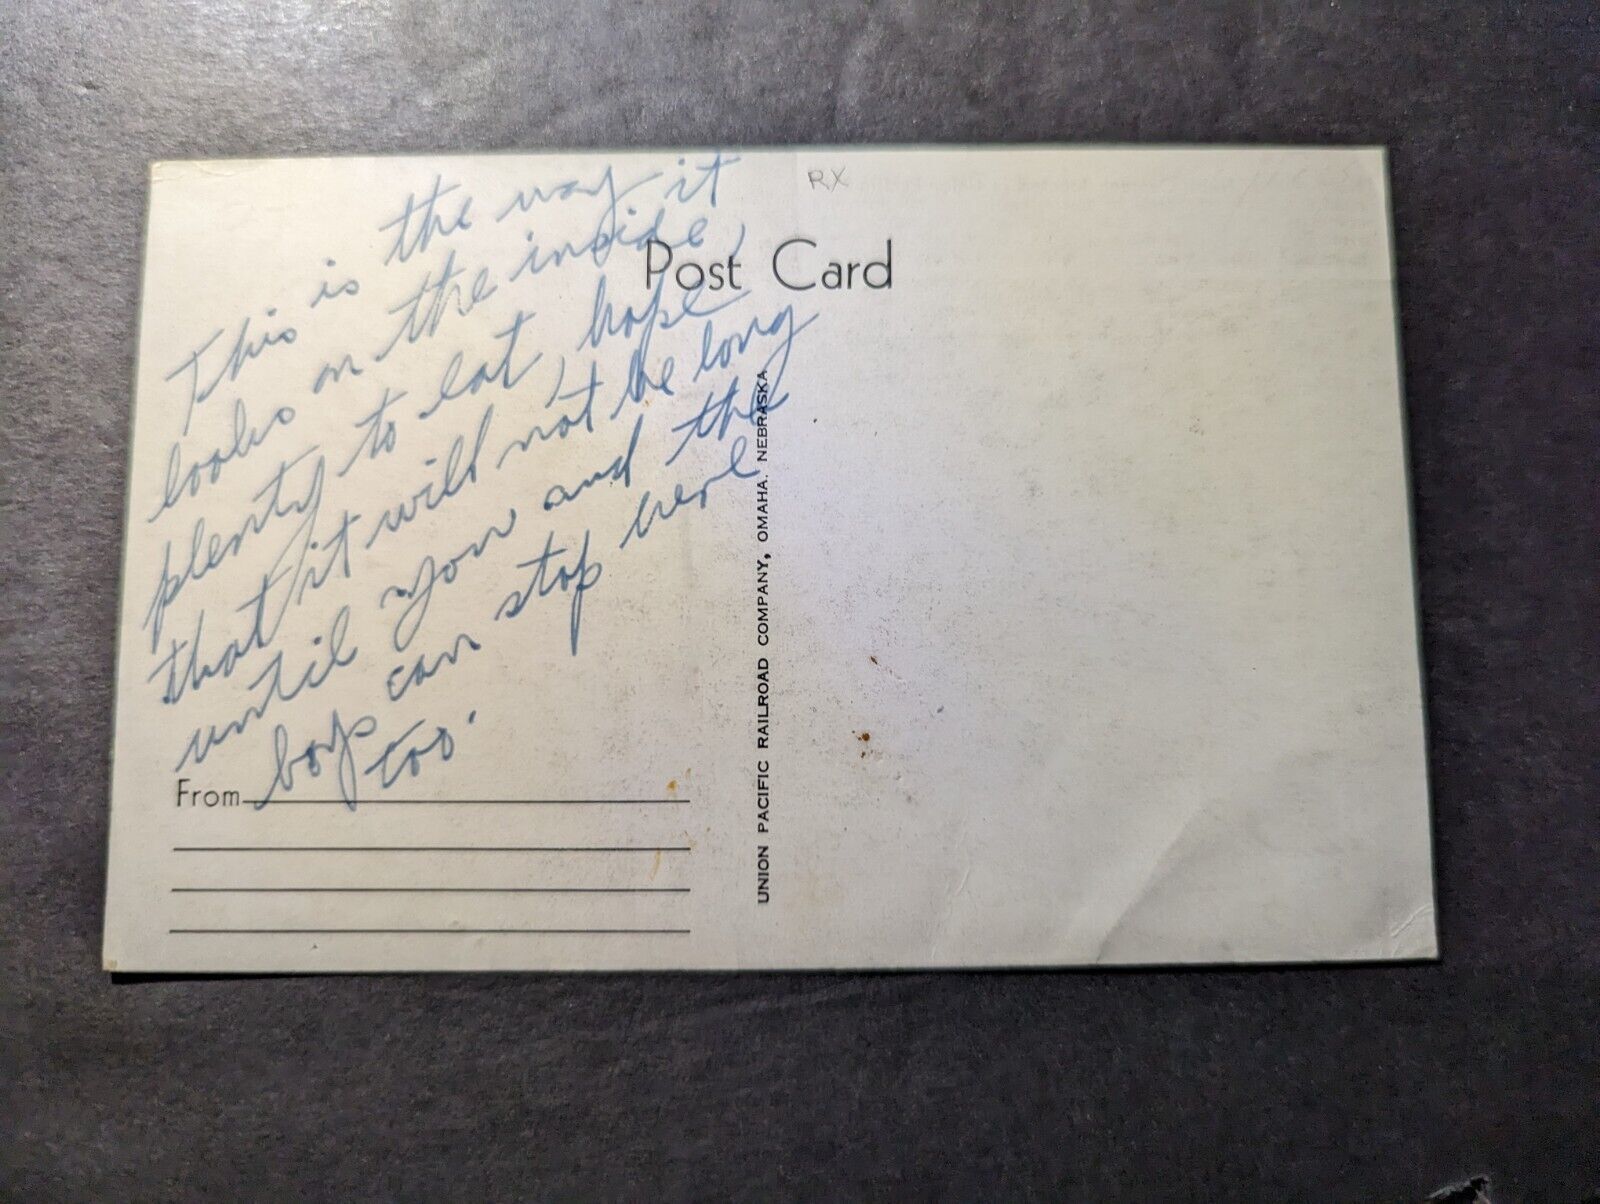 This is the way it
looks on the inside,
plenty to eat, hope
that it will not be long
until you and the
boys can stop here
too.
RX
Post Card
UNION PACIFIC RAILROAD COMPANY, OMAHA, NEBRASKA
From